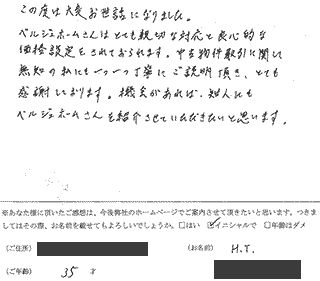 この度は大変お世話になりました。
ベルジェホームさんはとても親切な対応と良心的な
価格設定をされておられます。中古物件取引に関して
無知の私にも一つ一つ丁寧にご説明頂き、とても
感謝しております。機会があれば、知人にも
ベルジェホームさんを紹介させていただきたいと思います。
※あなた様に頂いたご感想は、今後弊社のホームページでご案内させて頂きたいと思います。つきま
してはその際、お名前を載せてもよろしいでしょうか。□はい ☑イニシャルで □年齢はダメ
(ご住所) (お名前) H.T.
(ご年齢) 35 才